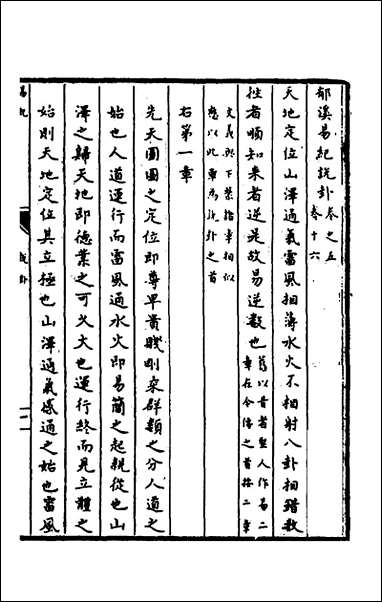 郁溪易紀說卦卷之五
卷十六
天地定位山澤通氣雷風相薄水火不相射八卦相錯數
徃者順知来者逆是故易逆數也
舊以昔者聖人作易二
章在今傳之首按二章
文義與下繫指章相似
應以此章為說卦之首
右第一章
先天圓圖之定位即尊卑貴賤剛柔群類之分人道之
始也人道運行而雷風通水火即易簡之起親從也山
澤之歸天地即德業之可久大也運行終而見立體之
始則天地定位其立極也山澤通氣孫通之始也雷風
易紀
說卦